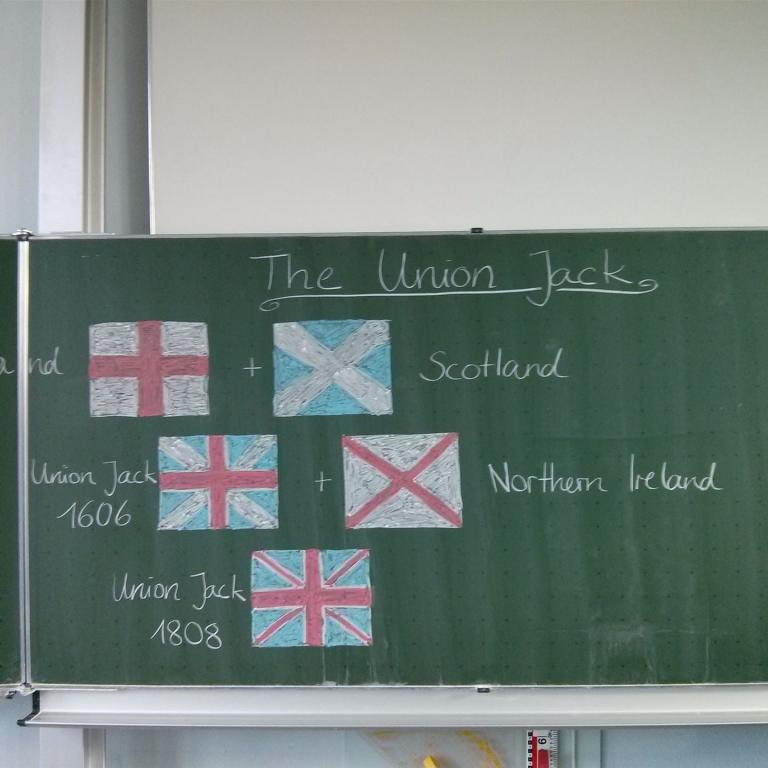 The Union Jack
and + Scotland
Union Jack + Northern Ireland
1606
Union Jack
1808